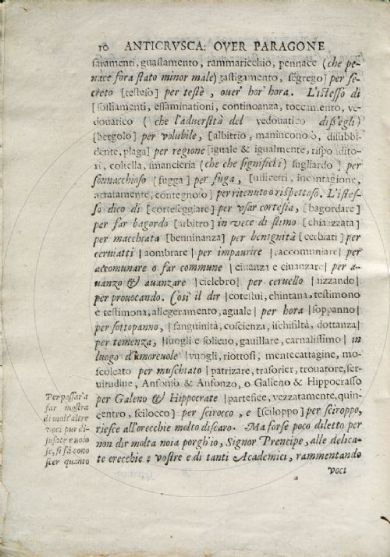 10 ANTICRVSCA: OVER PARAGONE
faramenti, guastamento, rammaricchio, pennace (che pe-
nace fora stato minor male) gastigamento, segrego] per se-
creto [testeso] per testè, ouer' hor' hora. L'istesso di
[sollamenti, essaminationi, continoanza, toccamento, ve-
douatico ( che l'aduersità del vedouatico diss'egli)
[bergolo] per volubile, [albitrio, maninconoiò, disubbi-
dente, plaga] per regione [iguale & igualmente, rispo
, coltella, (che che significhi) fugliardo] per
sonnacchioso [fugga] per fuga,
costatamente, contegnoso] per ritenuto o rispettoso. L'istes-
so dico di [corteseggiare] per vsar cortesia, [bagordare]
per far bagordo [arbitro] in vece di stimo [chiazzata]
per macchiata [benninanza] per benignità [cerbiati] per
ceruiatti [aombrare] per impaurire [accommuniare] per
accomunare o far commune [ciuanza e ciuanzare] per a-
uanzo & auanzare [cielebro] per ceruello [tizzando]
per prouocando. Così il dir [coteitui, chintana, testimono
e testimona, allegeramento, aguale] per hora [soppanno]
per sottopanno, [sanguinità, coscienza, ischifiltà, dottanza]
per temenza, [suogli e solieuo, gauillare, carnalissimo] in
luogo d'amoreuole [vuogli, riottosi, mentecattagine, mo-
scoleato per muschiato [patrizare, trasorier, trouatore, ser-
uitudine, Antonio & Anfonzo, o Galieno & Hippocrasso
per Galeno & Hippocrate [partefice, vezzatamente, quin-
centro, scilocco] per scirocco, e [sciloppo] per sciroppo,
riesce all'orecchie molto discaro. Ma forse poco diletto per
non dir molta noia porgh'io, Signor Prencipe, alle delica-
te orecchie e vostre e di tanti Academici, rammentando
voci
Per passar a
far mostra
di molt'altre
voci pur di-
susate e noio
se, si fà cono
scer quanto